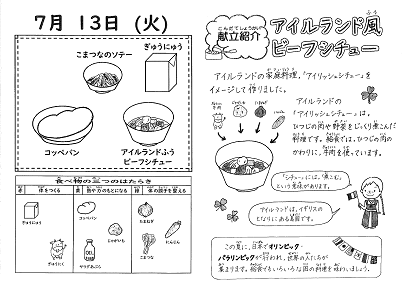 7月 13日 (火)
こまつなのソテー
ぎゅうにゅう
コッペパン
アイルランドふう
ビーフシチュー
食べ物の三つのはたらき
赤 体をつくる
黄 熱や力のもとになる
緑 体の調子を整える
ぎゅうにゅう
ぎゅうにく
コッペパン
じゃがいも
サラダあぶら
たまねぎ
こまつな
にんじん
こんだてしょうかい
献立紹介
アイルランド風
ふう
ビーフシチュー
アイルランドの家庭料理、「アイリッシュシチュー」を
イメージして作りました。
アイルランドの
「アイリッシュシチュー」は、
ひつじの肉や野菜をじっくり煮こんだ
料理です。給食では、ひつじの肉の
かわりに、牛肉を使っています。
「シチュー」には、「煮こむ」
という意味があります。
アイルランドは、イギリスの
となりにある島国です。
この夏に、日本でオリンピック・
パラリンピックが行われ、世界の人たちが
集まります。給食でもいろいろな国の料理を味わいましょう。